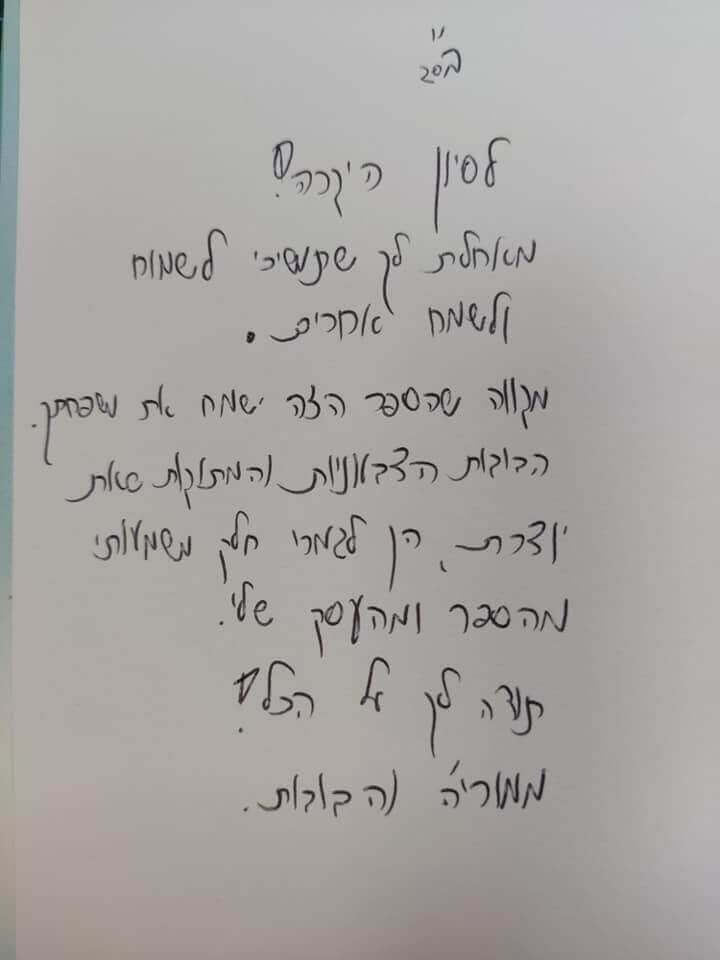 לסיון היקרה!
מאחלת לך שתמשיכי לשמוח
ולשמח אחרים.
מקווה שהספר הזה ישמח את משפחתך.
הבובות הצבעוניות והמתוקות שאת
יוצרת, הן לגמרי חלק משמעותי
מהספר ומהעסק שלי.
תודה לך על הכל!
ממוריה והבובות.